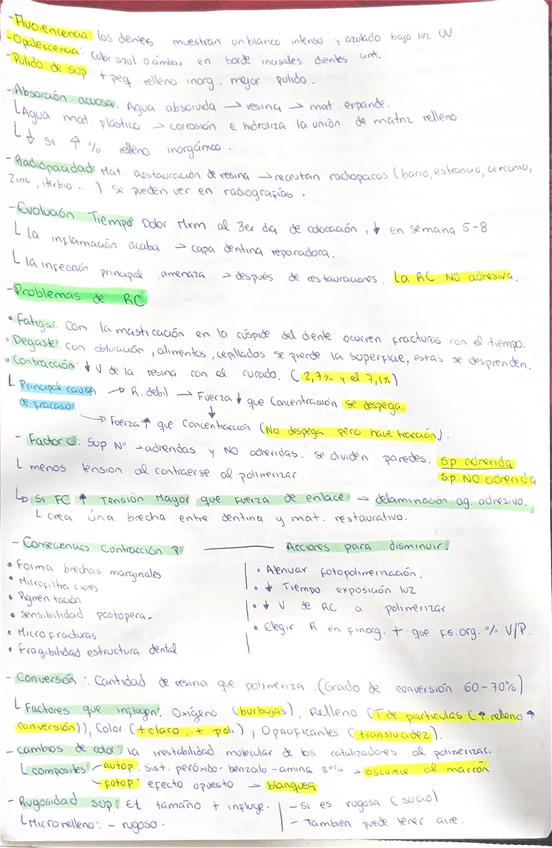 - Fluorencencia los dientes muestran un blanco intenso y azulado bajo luz UV.
- Opalescencia: Color azul o ámbar en borde incisales dientes ant.
- Pulido de sup: + peq. relleno inorg. mejor pulido.
- Absorción acuosa. Agua absorvida → resina → mat. expande.
Agua mat. plástico → corrosión e hidroliza la unión de matriz relleno.
↓ si ↑ % relleno inorgánico.
- Radiopacidad Mat restauración de resina → necesitan radiopacos (bario, estroncio, circonio,
Zinc, iterbio..) se pueden ver en radiografías.
- Evolución Tiempo Dolor Mxm al 3er día de colocación, ↓ en semana 5-8
la inflamación acaba → capa dentina reparadora.
la infección principal amenaza → después de restauraciones. la RC NO adhesiva.
- Problemas de RC
• Fatiga: Con la masticación en la cúspide del diente ocurren fracturas con el tiempo.
• Degaste: con obturación, alimentos, cepillados se pierde la superficie, estas se desprenden.
• Contracción: ↓ V de la resina con el curado. (2,7% y el 7,1%)
Principal causa de fracaso → R. debil → Fuerza ↓ que Concentracción se despega.
→ Fuerza ↑ que Concentracción (No despega pero have tracción).
- Factor C: Sup Nº → adheridas y NO adheridas. se dividen paredes. sp adherida
menos tension al contraerse al polimerizar sp NO adherida
si FC ↑ Tensión Mayor que fuerza de enlace → delaminación ag. adhesivo.
crea una brecha entre dentina y mat. restaurativo.
- Consecuencias Contracción P Acciones para disminuir.
• Forma brechas marginales • Atenuar fotopolimerización.
• Microfiltraciones • ↓ Tiempo exposición luz
• Pigmentación • ↓ V de RC a polimerizar
• Sensibilidad postopera. • Elegir R en F.inorg. + que Fs.org. % V/P.
• Microfracturas
• Fragibilidad estructura dental
- Conversión: Cantidad de resina que polimeriza. (Grado de conversión 60-70%)
Factores que influyen: Oxígeno (burbujas), Relleno (T de partículas (↑ relleno ↑
conversión)), Color (+ claro, + poli), Opacificantes (translucidez).
- cambios de color: la inestabilidad molecular de los catalizadores al polimerizar.
composites autop: sist. peróxido-benzolo-amina 3ªria → oscurece al marrón
fotop: efecto opuesto → blanquea
- Rugosidad sup: El tamaño + influye. - si es rugosa (sucio)
Microrelleno: - rugoso. - También puede tener aire.